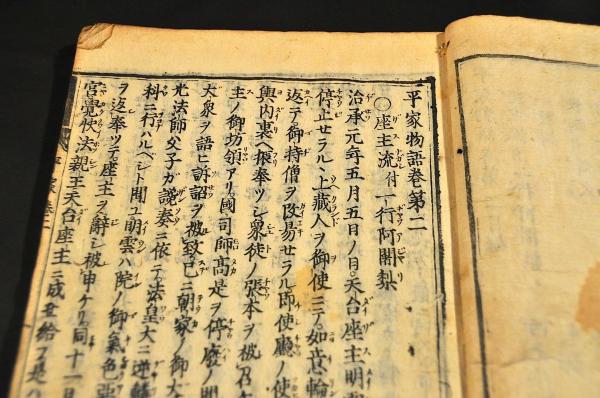 平家物語巻第二
○座主流 付 一行阿闍梨
治承元年五月五日ノ日天台座主明雲
停止セラルヽ上蔵人ヲ御使ニテ如意輪
返テ御持僧ヲ改易セラル即使庁ノ使
輿内裏ヘ振奉ツシ衆徒ノ張本ヲ被召
主ノ御坊領アリ國司師高是ヲ停廢ノ間
大衆ヲ語ヒ訴詔ヲ被致已ニ朝家ノ御大
光法師父子カ讒奏ニ依テ法皇大ニ逆鱗
科ニ行ハルヘシト聞ユ明雲ハ院ノ御氣色
ヲ返奉ツテ座主ヲ辞シ被申ケリ同十一日
宮覺快法親王天台座主ニ成せ給フ是ハ